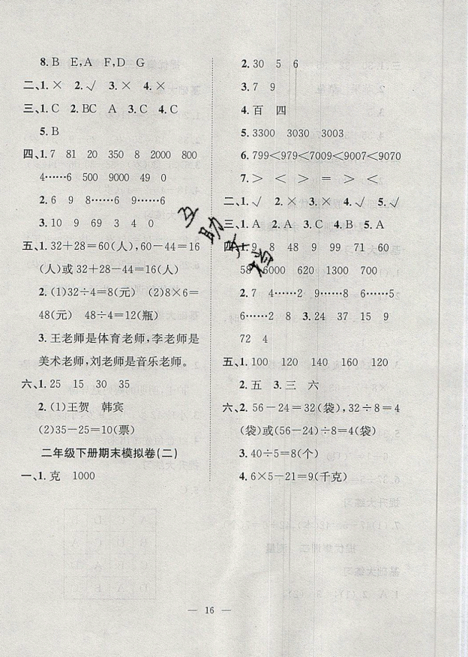 8. B E、A F、D G
二、1. × 2. √ 3. × 4. ×
三、1. C 2. BC A 3. C 4. C
5. B
四、1. 7 81 20 350 8 2000 800
4……6 500 9000 49 0
2. 6 9 8……6 9……6
3. 10 9 69 3 4 0
五、1. 32＋28＝60(人),60－44＝16
(人)或32－44＋28＝16(人)
2. (1)32÷4＝8(元) (2)8×6＝
48(元) 48÷4＝12(瓶)
3. 王老师是体育老师,李老师是
美术老师,刘老师是音乐老师。
六、1. 25 15 30 35
2. (1)王贺 韩宾
(2)35－25＝10(票)
二年级下册期末模拟卷(二)
一、1. 克 1000
2. 30 5 6
3. 7 9
4. 百 四
5. 3300 3030 3003
6. 799＜979＜7009＜9007＜9070
7. ＞ ＜ ＞ ＝ ＜ ＝
二、1. √ 2. × 3. × 4. √ 5. √
三、1. A 2. A 3. C 4. B 5. A
四、1. 9 8 48 9 99 71 60
58 6000 620 1300 7 56
2. 7 4……2 9……8 4……6
5……2 9……2 3. 24 37 15 9
72 3
五、1. 100 120 140 160
2. 五 3. 三 六
六、2. 56－24＝32(袋),32÷8＝4
(袋)或56－(24＋8)……
3. 40÷5＝8(个)
4. 6×5－21＝9(千克)
互助文档
— 16 —